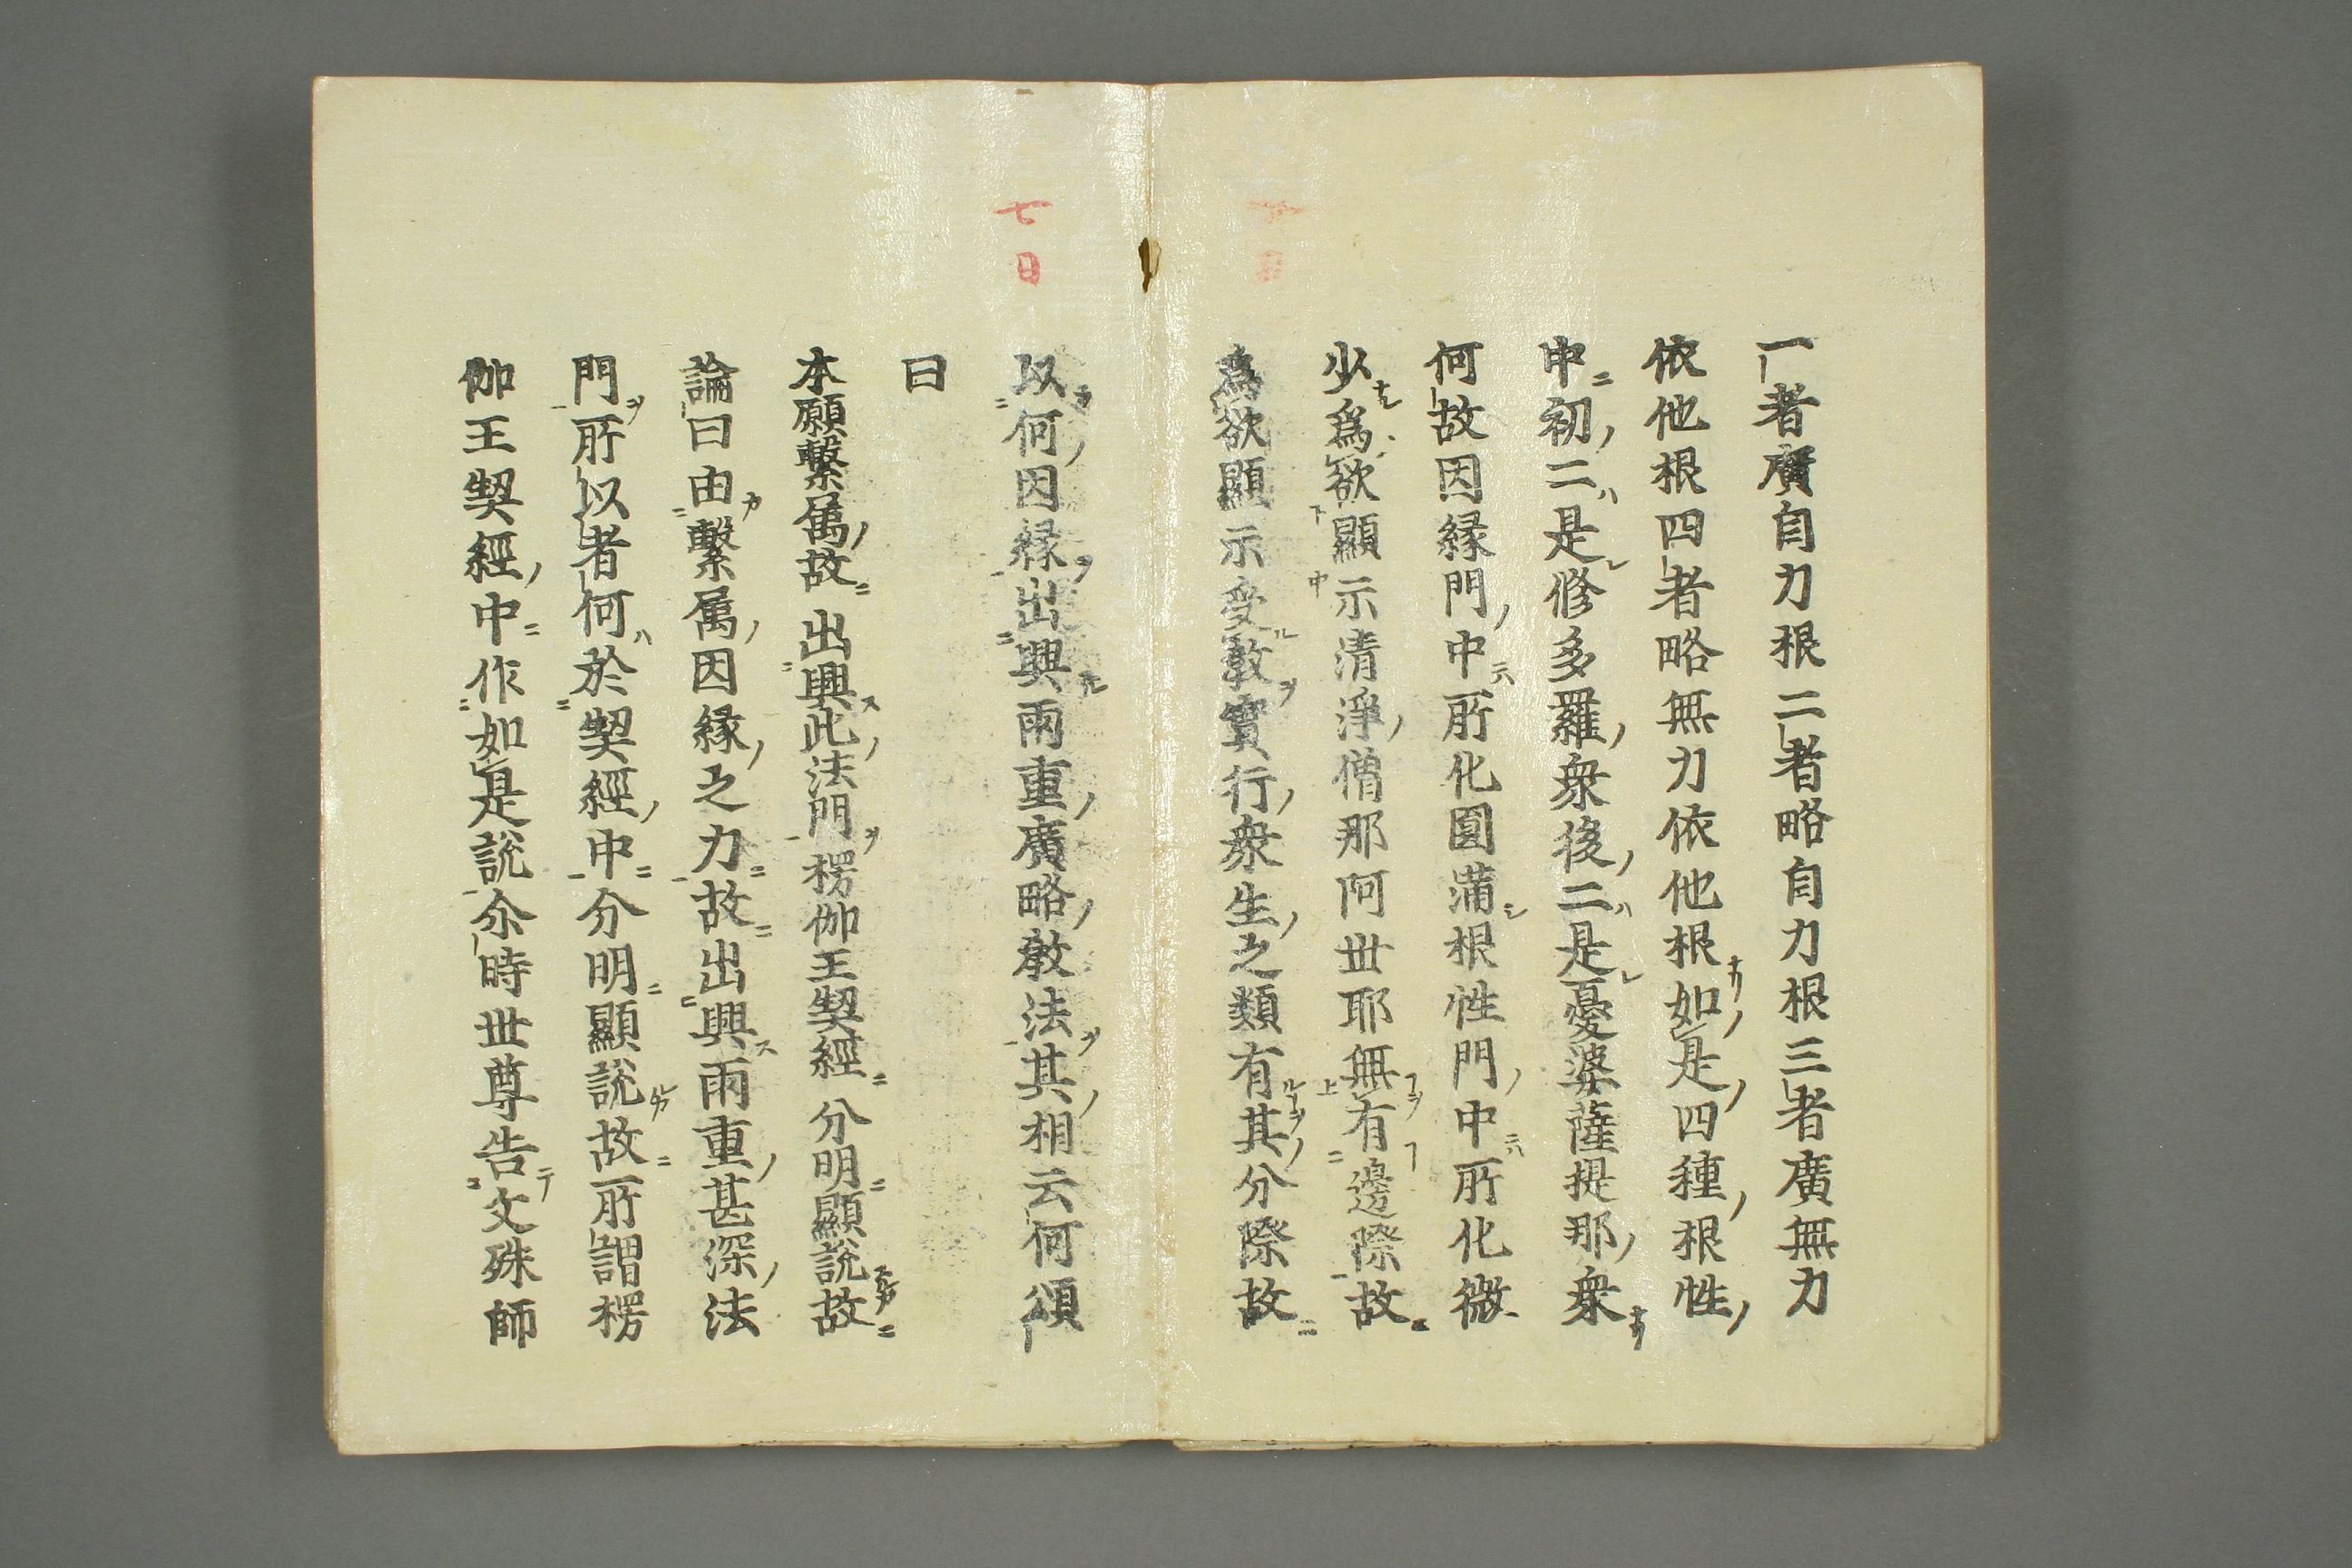 一者廣自力根二者略自力根三者廣無力
依他根四者略無力依他根如是四種根性
中初二是修多羅衆後二是憂婆薩提那衆
何故因縁門中所化圓滿根性門中所化微
少爲欲顯示清淨僧那阿世耶無有邊際故
爲欲顯示受敎實行衆生之類有其分際故
七日
以何因縁出興兩重廣略敎法其相云何頌
曰
本願繫属故 出興此法門 楞伽王契經 分明顯說故
論曰由繫属因縁之力故出興兩重甚深法
門所以者何於契經中分明顯說故所謂楞
伽王契經中作如是說尒時世尊告文殊師